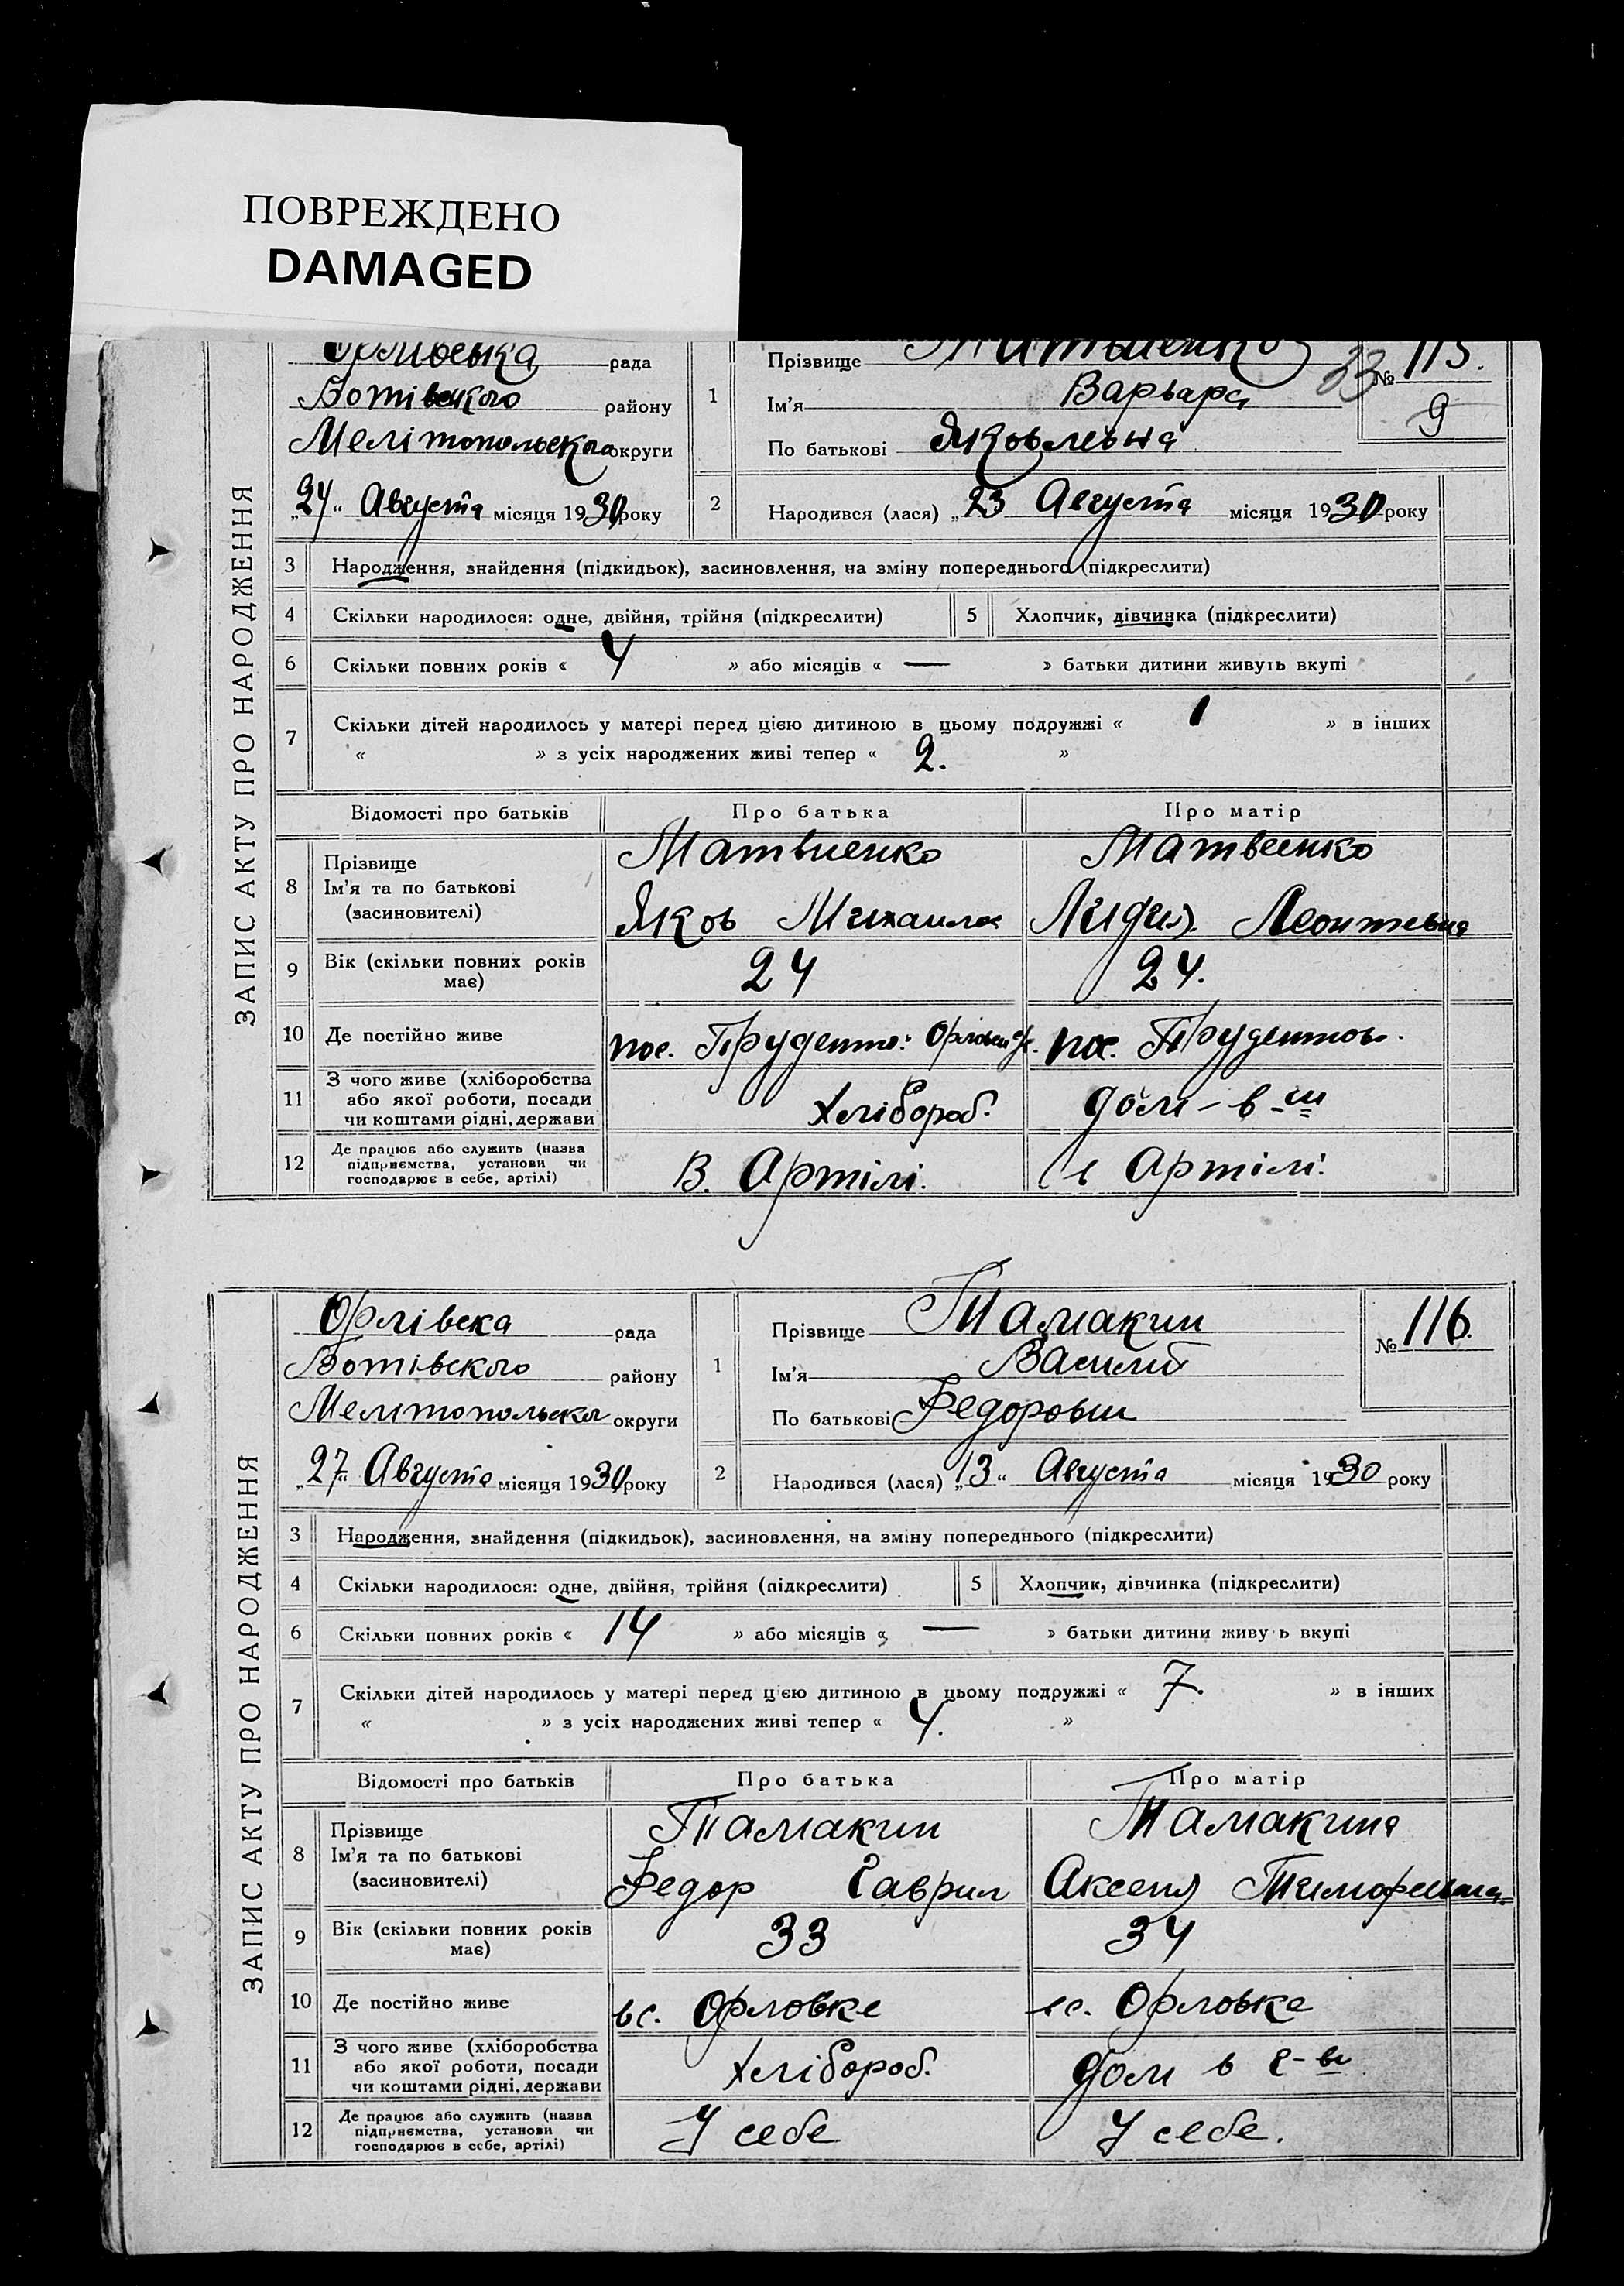 ПОВРЕЖДЕНО
DAMAGED
ЗАПИС АКТУ ПРО НАРОДЖЕННЯ
Орлівська рада
Ботівського району
Мелітопольського округи
„24“ Августа місяця 1930 року
1 Прізвище Матвиенко
Ім’я Варвара
По батькові Яковлевна
33 № 115.
9
2 Народився (лася) „23 Августа місяця 1930 року
3 Народження, знайдення (підкидьок), засиновлення, на зміну попереднього (підкреслити)
4 Скільки народилося: одне, двійня, трійня (підкреслити) 5 Хлопчик, дівчинка (підкреслити)
6 Скільки повних років « 4 » або місяців « — » батьки дитини живуть вкупі
7 Скільки дітей народилось у матері перед цією дитиною в цьому подружжі « 1 » в інших
« » з усіх народжених живі тепер « 2. »
Відомості про батьків Про батька Про матір
8 Прізвище Ім’я та по батькові (засиновителі)
Матвиенко Матвеенко
Яков Михаила Лидия Леонтевна
9 Вік (скільки повних років має) 24 24.
10 Де постійно живе пос. Орловск. пос.
11 З чого живе (хліборобства або якої роботи, посади чи коштами рідні, держави Хлібороб. дом-в
12 Де працює або служить (назва підприємства, установи чи господарює в себе, артілі) В. Артілі. в Артілі.
ЗАПИС АКТУ ПРО НАРОДЖЕННЯ
Орлівска рада
Ботівского району
Мелитопольско округи
„27“ Августа місяця 1930 року
1 Прізвище Тамакин
Ім’я Василий
По батькові Федорович
№ 116.
2 Народився (лася) „13“ Августа місяця 1930 року
3 Народження, знайдення (підкидьок), засиновлення, на зміну попереднього (підкреслити)
4 Скільки народилося: одне, двійня, трійня (підкреслити) 5 Хлопчик, дівчинка (підкреслити)
6 Скільки повних років « 14 » або місяців « — » батьки дитини живуть вкупі
7 Скільки дітей народилось у матері перед цією дитиною в цьому подружжі « 7. » в інших
« » з усіх народжених живі тепер « 4. »
Відомості про батьків Про батька Про матір
8 Прізвище Ім’я та по батькові (засиновителі)
Тамакин Тамакина
Федор Гаврил Аксения Тимофеевна
9 Вік (скільки повних років має) 33 34
10 Де постійно живе в с. Орловке в с. Орловке
11 З чого живе (хліборобства або якої роботи, посади чи коштами рідні, держави Хлібороб. дом в
12 Де працює або служить (назва підприємства, установи чи господарює в себе, артілі) У себе У себе.